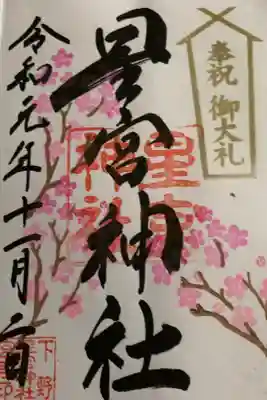 奉祝 御大礼
星宮神社
星宮
神社
令和元年十一月二日
下野